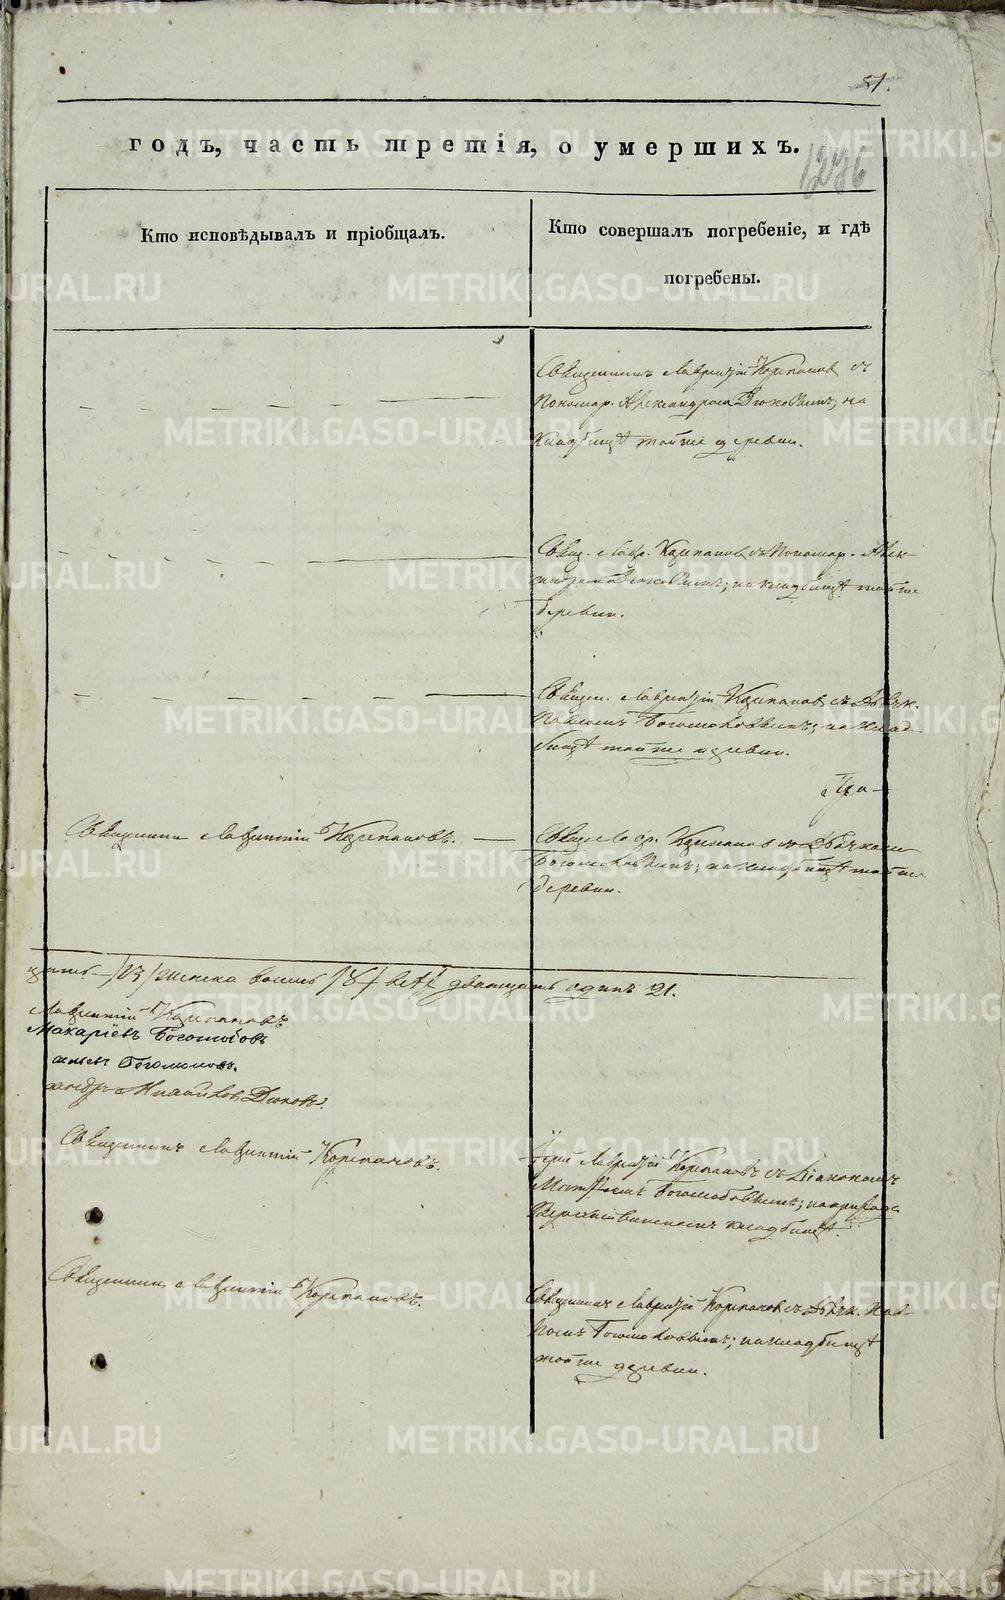 51.
годъ, часть третія, о умершихъ.
1276
Кто исповѣдывалъ и пріобщалъ.
Кто совершалъ погребеніе, и гдѣ
погребены.
Священникъ Лаврентій Корепановъ съ
Пономар. Александромъ Дюковымъ; на
кладбищѣ той же деревни.
Свящ. Лавр. Корепановъ съ Пономар. Алек-
сандромъ Дюковымъ; на кладбищѣ той же
деревни.
Священ. Лаврентій Корепановъ съ Дьячк.
Павломъ Богомоловымъ; на клад-
бищѣ той же деревни.
Священникъ Лаврентій Корепановъ.
Свящ. Лавр. Корепановъ съ Дьячкомъ
Богомоловымъ; на кладбищѣ той же
деревни.
/13/ женска восемь /8/ всѣхъ двадцать одинъ 21.
Лаврентій Корепановъ
Макаріевъ Богомоловъ
Богомоловъ.
Михайловъ Дюковъ.
Священникъ Лаврентій Корепановъ.
Іерей Лаврентій Корепановъ съ Діакономъ
Богомоловымъ; на приход-
кладбищѣ.
Священникъ Лаврентій Корепановъ.
Священникъ Лаврентій Корепановъ съ Дьячк. Пав-
ломъ Богомоловымъ; на кладбищѣ
той же деревни.
METRIKI.GASO-URAL.RU